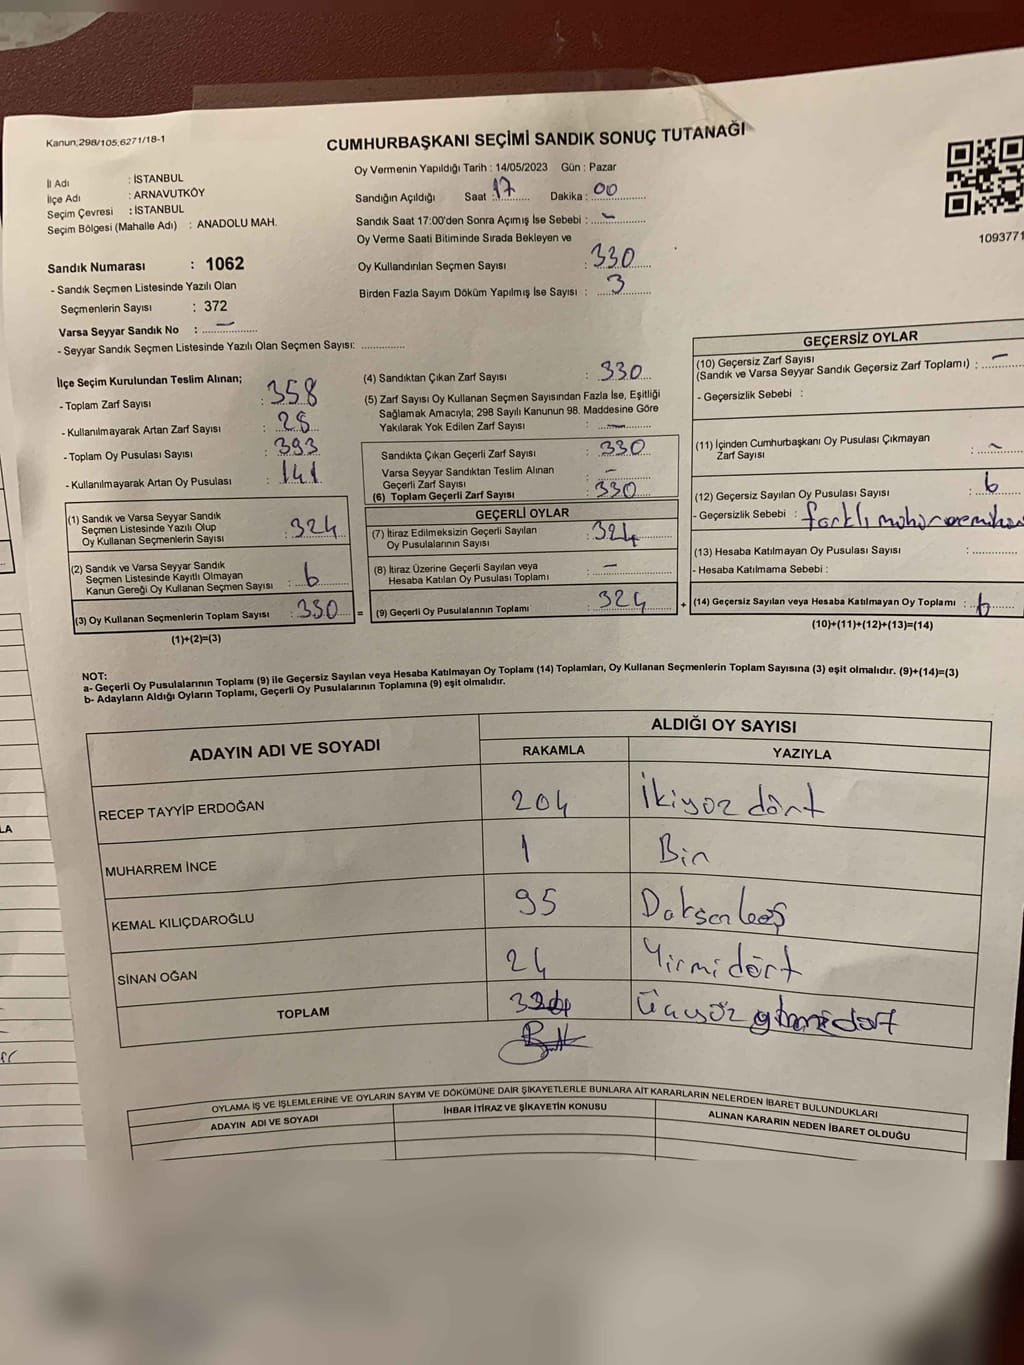 Kanun;298/105,6271/18-1
CUMHURBAŞKANI SEÇİMİ SANDIK SONUÇ TUTANAĞI
Oy Vermenin Yapıldığı Tarih : 14/05/2023 Gün : Pazar
İl Adı : İSTANBUL
İlçe Adı : ARNAVUTKÖY
Seçim Çevresi : İSTANBUL
Seçim Bölgesi (Mahalle Adı) : ANADOLU MAH.
Sandığın Açıldığı Saat 17 Dakika : 00
Sandık Saat 17:00'den Sonra Açımış İse Sebebi : –
Oy Verme Saati Bitiminde Sırada Bekleyen ve
Oy Kullandırılan Seçmen Sayısı : 330
Birden Fazla Sayım Döküm Yapılmış İse Sayısı : 3
1093771
Sandık Numarası : 1062
- Sandık Seçmen Listesinde Yazılı Olan
Seçmenlerin Sayısı : 372
Varsa Seyyar Sandık No : –
- Seyyar Sandık Seçmen Listesinde Yazılı Olan Seçmen Sayısı: ..............
İlçe Seçim Kurulundan Teslim Alınan;
- Toplam Zarf Sayısı : 358
- Kullanılmayarak Artan Zarf Sayısı : 28
- Toplam Oy Pusulası Sayısı : 393
- Kullanılmayarak Artan Oy Pusulası : 141
(1) Sandık ve Varsa Seyyar Sandık
Seçmen Listesinde Yazılı Olup
Oy Kullanan Seçmenlerin Sayısı : 324
(2) Sandık ve Varsa Seyyar Sandık
Seçmen Listesinde Kayıtlı Olmayan
Kanun Gereği Oy Kullanan Seçmen Sayısı : 6
(3) Oy Kullanan Seçmenlerin Toplam Sayısı : 330 =
(1)+(2)=(3)
(4) Sandıktan Çıkan Zarf Sayısı : 330
(5) Zarf Sayısı Oy Kullanan Seçmen Sayısından Fazla İse, Eşitliği
Sağlamak Amacıyla; 298 Sayılı Kanunun 98. Maddesine Göre
Yakılarak Yok Edilen Zarf Sayısı : –
Sandıkta Çıkan Geçerli Zarf Sayısı : 330
Varsa Seyyar Sandıktan Teslim Alınan
Geçerli Zarf Sayısı : –
(6) Toplam Geçerli Zarf Sayısı : 330
GEÇERLİ OYLAR
(7) İtiraz Edilmeksizin Geçerli Sayılan
Oy Pusulalarının Sayısı : 324
(8) İtiraz Üzerine Geçerli Sayılan veya
Hesaba Katılan Oy Pusulası Toplamı : –
(9) Geçerli Oy Pusulalarının Toplamı : 324 +
GEÇERSİZ OYLAR
(10) Geçersiz Zarf Sayısı
(Sandık ve Varsa Seyyar Sandık Geçersiz Zarf Toplamı) : –
- Geçersizlik Sebebi :
(11) İçinden Cumhurbaşkanı Oy Pusulası Çıkmayan
Zarf Sayısı : –
(12) Geçersiz Sayılan Oy Pusulası Sayısı : 6
- Geçersizlik Sebebi : farklı mühür
(13) Hesaba Katılmayan Oy Pusulası Sayısı : ............
- Hesaba Katılmama Sebebi :
(14) Geçersiz Sayılan veya Hesaba Katılmayan Oy Toplamı : 6
(10)+(11)+(12)+(13)=(14)
NOT:
a- Geçerli Oy Pusulalarının Toplamı (9) ile Geçersiz Sayılan veya Hesaba Katılmayan Oy Toplamı (14) Toplamları, Oy Kullanan Seçmenlerin Toplam Sayısına (3) eşit olmalıdır. (9)+(14)=(3)
b- Adayların Aldığı Oyların Toplamı, Geçerli Oy Pusulalarının Toplamına (9) eşit olmalıdır.
ADAYIN ADI VE SOYADI
ALDIĞI OY SAYISI
RAKAMLA YAZIYLA
RECEP TAYYİP ERDOĞAN 204 İkiyüz dört
MUHARREM İNCE 1 Bir
KEMAL KILIÇDAROĞLU 95 Doksanbeş
SİNAN OĞAN 24 Yirmidört
TOPLAM 324 Üçyüz yirmidört
OYLAMA İŞ VE İŞLEMLERİNE VE OYLARIN SAYIM VE DÖKÜMÜNE DAİR ŞİKAYETLERLE BUNLARA AİT KARARLARIN NELERDEN İBARET BULUNDUKLARI
ADAYIN ADI VE SOYADI İHBAR İTİRAZ VE ŞİKAYETİN KONUSU ALINAN KARARIN NEDEN İBARET OLDUĞU
LA